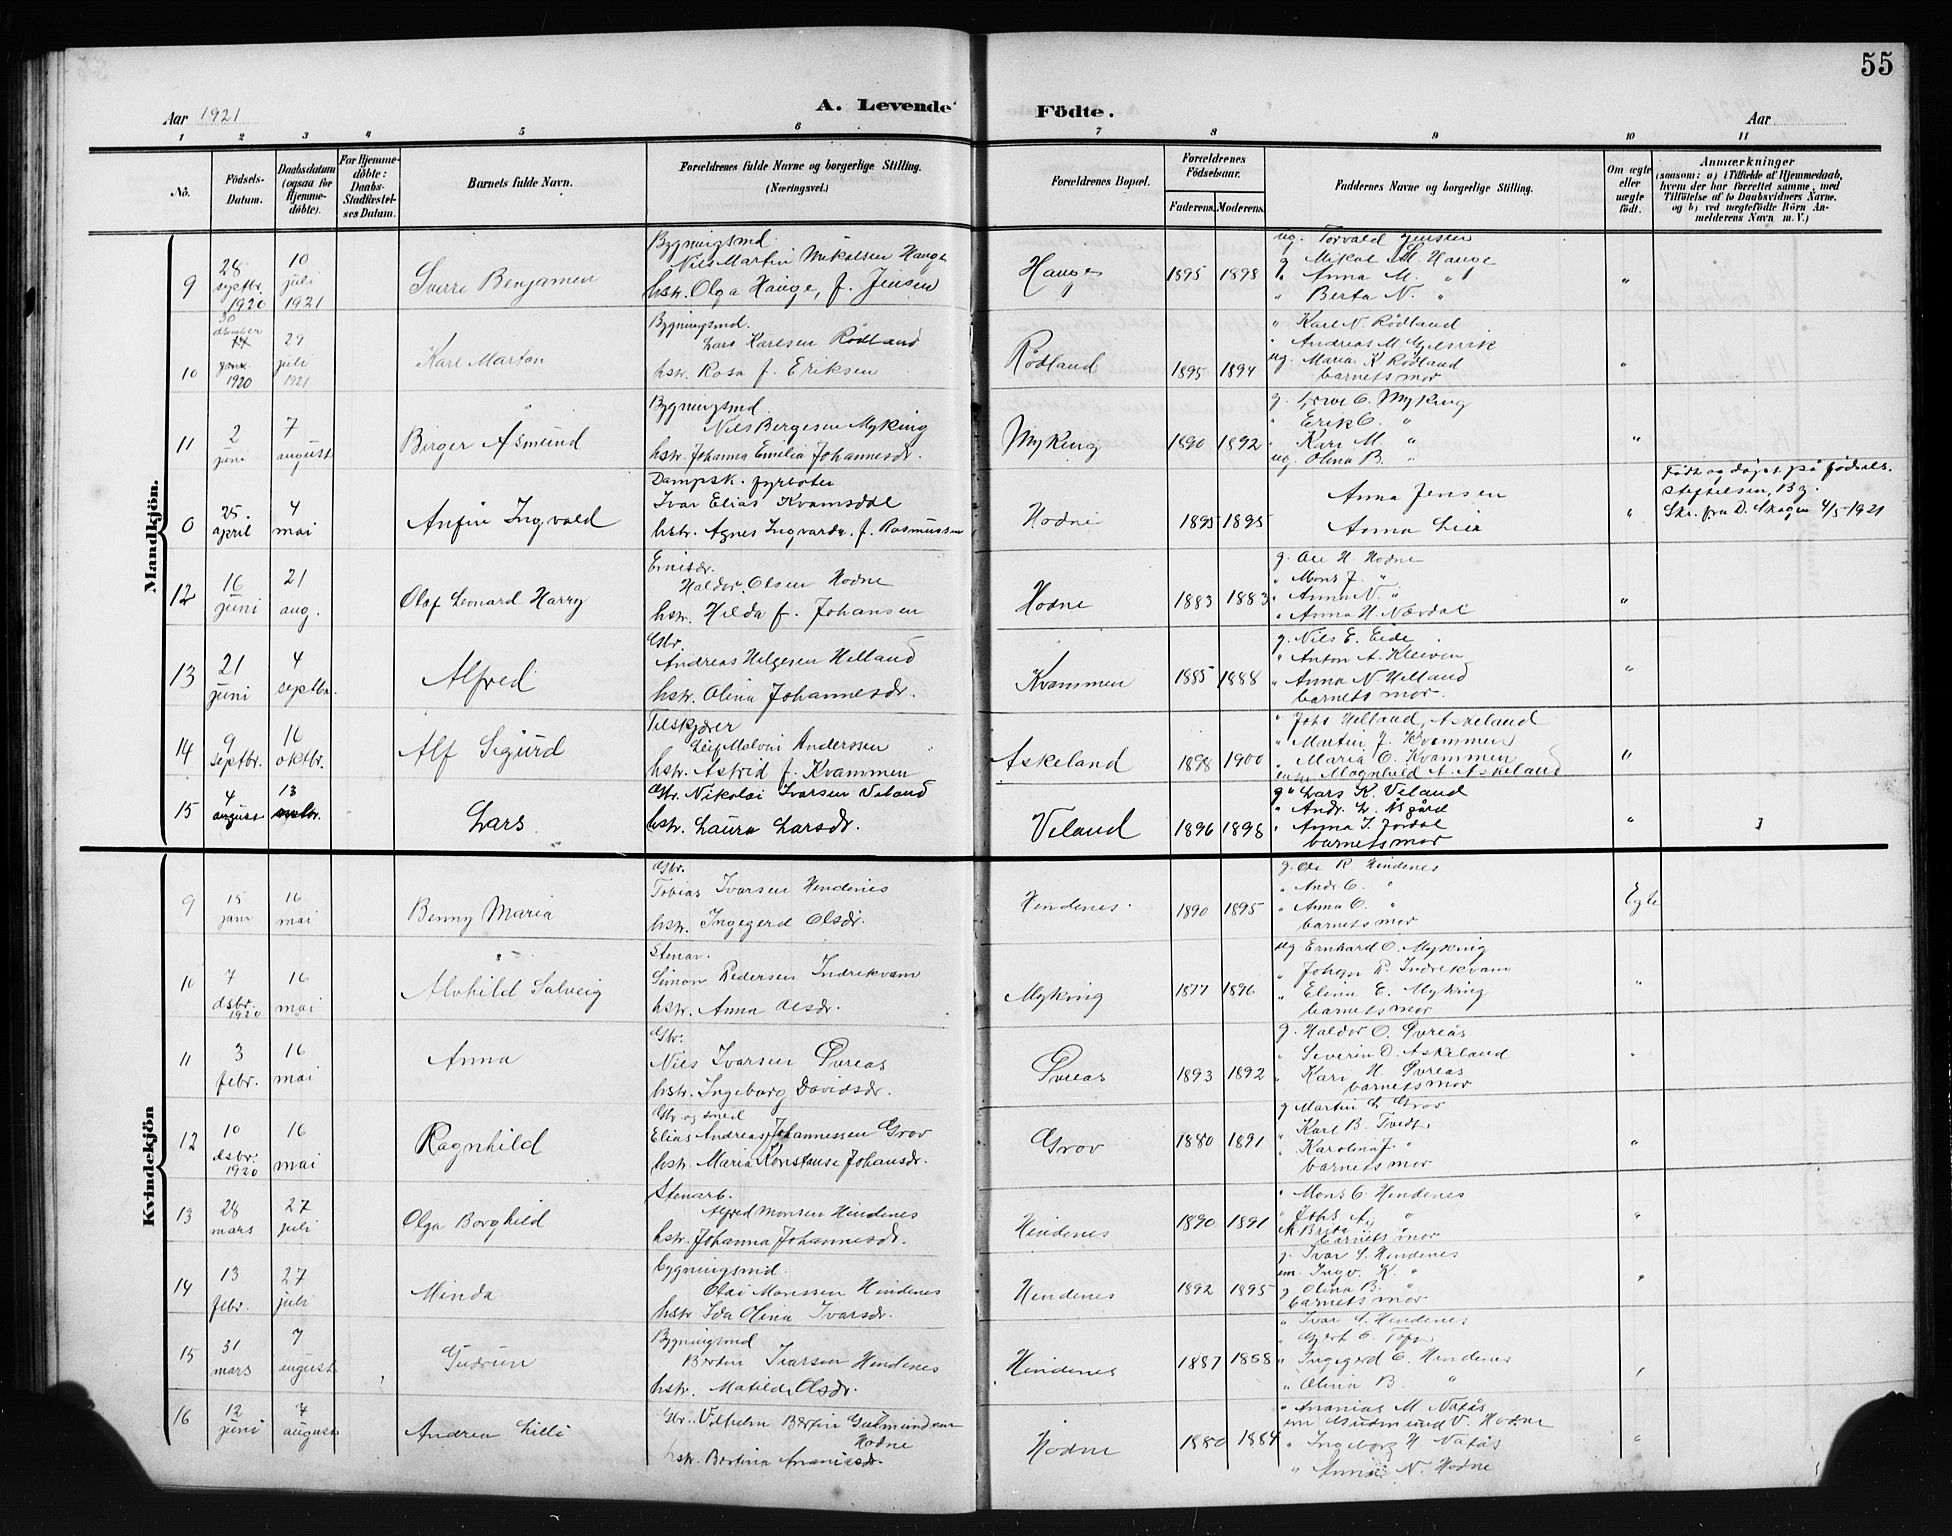 55
A. Levende Födte.
Aar 1921
Aar
1 2 3 4 5 6 7 8 9 10 11
No.
Födsels-Datum.
Daabsdatum (ogsaa for Hjemmedöbte).
For Hjemmedöbte: Daabs-Stadfæstelses Datum.
Barnets fulde Navn.
Forældrenes fulde Navne og borgerlige Stilling. (Næringsvei.)
Forældrenes Bopæl.
Forældrenes Födselsaar.
Faderens. Moderens.
Faddernes Navne og borgerlige Stilling.
Om ægte eller uægte födt.
Anmærkninger
(saasom: a) i Tilfælde af Hjemmedaab, hvem der har forrettet samme, med Tilföielse af to Daabsvidners Navne. og b) ved uægtefödte Börn Anmelderens Navn m. V.)
Mandkjön.
9 28 septbr. 1920 10 juli 1921 Sverre Benjamen
Bygningsmd.
Nils Martin Mikalsen Hauge
hstr. Olga Hauge, f. Jensen
Hauge 1895 1898
ug. Torvald Jensen
g. Mikal M. Hauge
" Anna M. "
" Berta N. "
"
10 30 desember 1920 29 juli 1921 Karl Martin
Bygningsmd.
Lars Karlsen Rødland
hstr. Rosa f. Eriksen
Rødland 1895 1894
" Karl N. Rødland
" Andreas M. Gjelsvik
ug. Maria K Rødland
barnets mor
"
11 2 juni 7 august Birger Åsmund
Bygningsmd.
Nils Bergesen Myking
hstr. Johanna Emilia Johannesdr.
Myking 1890 1892
g. O. Myking
" Erik O. "
" Kari M. "
ug. Olina B. "
"
0 25. april 4 mai Anfin Ingvald
Dampsk. fyrbøter
Ivar Elias Kvamsdal
hstr. Agnes Ingvarda f. Rasmussen
Hodne 1895 1895
Anna Jensen
Anna Lie
"
Født og døpt på fødsels-
stiftelsen, Bg.
Skr. fra D. Skagen 4/5-1921
12 16 juni 21 aug. Olaf Leonard Harry
Haldor Olsen Hodne
hstr. Hilda f. Johansen
Hodne 1883 1883
g. Ole H. Hodne
" Mons J. "
" Anna N. "
" Anna H Nævdal
"
13 21 juni 4 septbr. Alfred
Gbr.
Andreas Helgesen Helland
hstr. Olina Johannesdr.
Kvammen 1885 1888
g. Nils E. Eide
" Anton A. Kleiven
" Anna N. Helland
barnets mor.
"
14 9 septbr. 16 oktbr. Alf Sigurd
Leif Malvin Anderssen
hstr. Astrid f. Kvammen
Askeland 1898 1900
" Johs Helland, Askeland
" Martin J. Kvammen
" Maria O. Kvammen
Magnhild A. Askeland
"
15 4 august 13 Lars
Gbr. Nikolai Ivarsen Veland
hstr. Laura Larsdr.
Veland 1896 1898
g " Lars K. Veland
" Andr. L. Åsgård
" Anna I. Jordal
barnets mor
"
Kvindekjön
9 15 janr 16 mai Benny Maria
Gbr.
Tobias Ivarsen Hindenes
hstr. Ingegerd Olsdr.
Hindenes. 1890 1895
g. Ole R Hindenes
" Andr. O. "
" Anna O. "
barnets mor
Egte
10 7 dsbr. 1920 16 mai Alvhild Solveig
Stenarb.
Simon Pedersen Indrekvam
hstr. Anna Olsdr.
Myking 1877 1896
ug Ernhard O. Myking
" Johan P. Indrekvam
" Elina E. Myking
barnets mor
"
11 3 febr. 16 mai Anna
Gbr.
Nils Ivarsen Svreas
hstr. Ingeborg Davidsdr.
Svreas 1893 1892
g. Haldor O. Svreås
" Severin O. Askeland
" Kari H. Svreås
barnets mor
"
12 10 dsbr. 1920 16 mai Ragnhild
Gbr og smed
Elias Andreas Johannessen Grov
hstr. Maria Konstanse Johansdr.
Grov 1880 1891
g Martin L. Grov
" Karl B. Tvedt
" Karolina J. "
barnets mor
"
13 28 mars 27 juli Olga Borghild
Stenarb.
Alfred Monsen Hindenes
hstr. Johanna Johannesdr.
Hindenes 1890 1891
" Mons O. Hindenes
" Johs A. "
Brita "
barnets mor
"
14 13 febr. 27 juli Minda
bygningsmd.
Olai Monssen Hindenes
hstr Ida Olina Ivarsdr.
Hindenes 1892 1895
g. Ivar S. Hindenes
em. Ingv. K. "
g Olina B. "
barnets mor
"
15 31 mars 7 august Gudrun
Bygningsmd
Bertin Ivarsen Hindenes
hstr. Matilde Olsdr.
Hindenes 1887 1888
" Ivar S. Hindenes
" Gjert O.
" Ingegerd O. Hindenes
" Olina B. "
16 12 juni 7 august Andrea Lilli
Gbr. Vilhelm Bertin Gudmundsen Hodne
hstr. Bertina Ananiasdr.
Hodne 1880 1884
" Ananias M Natås
em Gudmund V. Hodne
" Ingeborg H Natås
" Anna N. Hodne
"